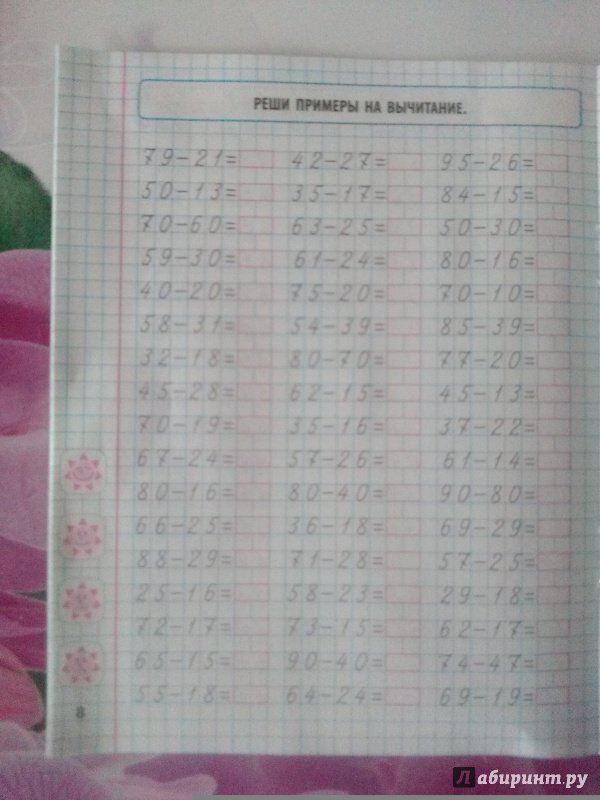 РЕШИ ПРИМЕРЫ НА ВЫЧИТАНИЕ.
79-21= 42-27= 95-26=
50-13= 35-17= 84-15=
70-60= 63-25= 50-30=
59-30= 61-24= 80-16=
40-20= 75-20= 70-10=
58-31= 54-39= 85-39=
32-18= 80-70= 77-20=
45-28= 62-15= 45-13=
70-19= 35-16= 37-22=
67-24= 57-26= 61-14=
80-16= 80-40= 90-80=
66-25= 36-18= 69-29=
88-29= 71-28= 57-25=
25-16= 58-23= 29-18=
72-17= 73-15= 62-17=
65-15= 90-40= 74-47=
55-18= 64-24= 69-19=
8
Лабиринт.ру